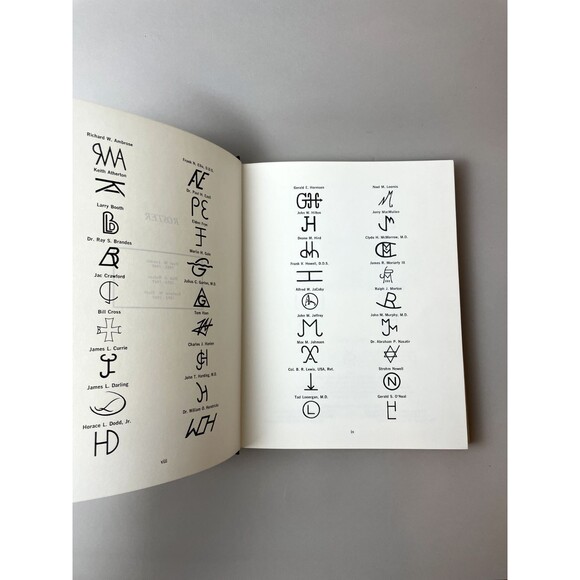 Richard W. Ambrose
Keith Atherton
Larry Booth
Dr. Ray S. Brandes
Jac Crawford
Bill Cross
James L. Currie
James L. Darling
Horace L. Dodd, Jr.
HD
viii
Frank H. Ellis, D.D.S.
Dr. Paul H. Ezell
Eldon Frye
Merle H. Gans
Tom Ham
Charles J. Hansen
John T. Harding, M.D.
Dr. William O. Hendricks
ROSTER
Donald C. Harmsen
GH
John W. Hilton
JH
Deane M. Hird
Frank V. Howell, D.D.S.
Alfred W. JaCoby
John W. Jeffrey
Max M. Johnson
Col. B. R. Lewis, USA, Ret.
Tad Lonergan, M.D.
L
Neal W. Loomis
Jerry MacMullen
Clyde H. McMorrow, M.D.
James R. Moriarty III
Ralph J. Morton
John M. Murphy, M.D.
Dr. Abraham P. Nasatir
Strohm Newell
N
Gerald S. O'Neal
ix